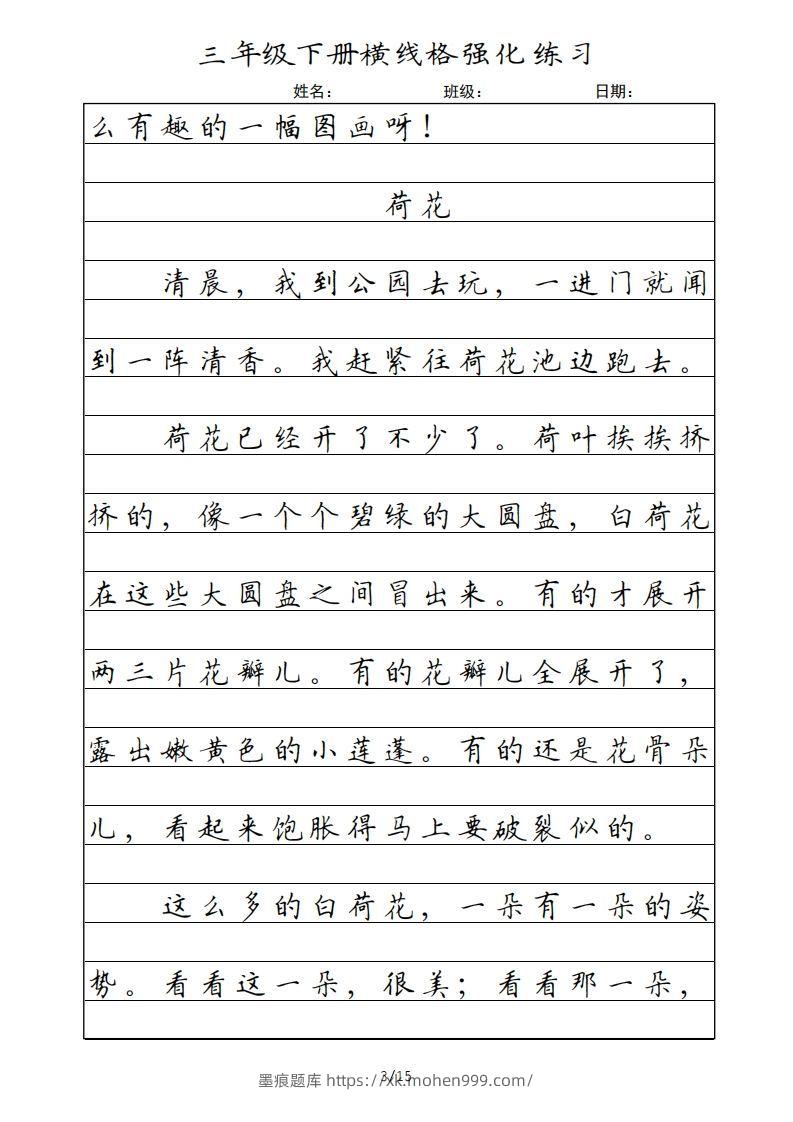 三年级下册横线格强化练习
姓名： 班级： 日期：
么有趣的一幅图画呀！
荷花
清晨，我到公园去玩，一进门就闻
到一阵清香。我赶紧往荷花池边跑去。
荷花已经开了不少了。荷叶挨挨挤
挤的，像一个个碧绿的大圆盘，白荷花
在这些大圆盘之间冒出来。有的才展开
两三片花瓣儿。有的花瓣儿全展开了，
露出嫩黄色的小莲蓬。有的还是花骨朵
儿，看起来饱胀得马上要破裂似的。
这么多的白荷花，一朵有一朵的姿
势。看看这一朵，很美；看看那一朵，
3/15
墨痕题库 https://xk.mohen999.com/